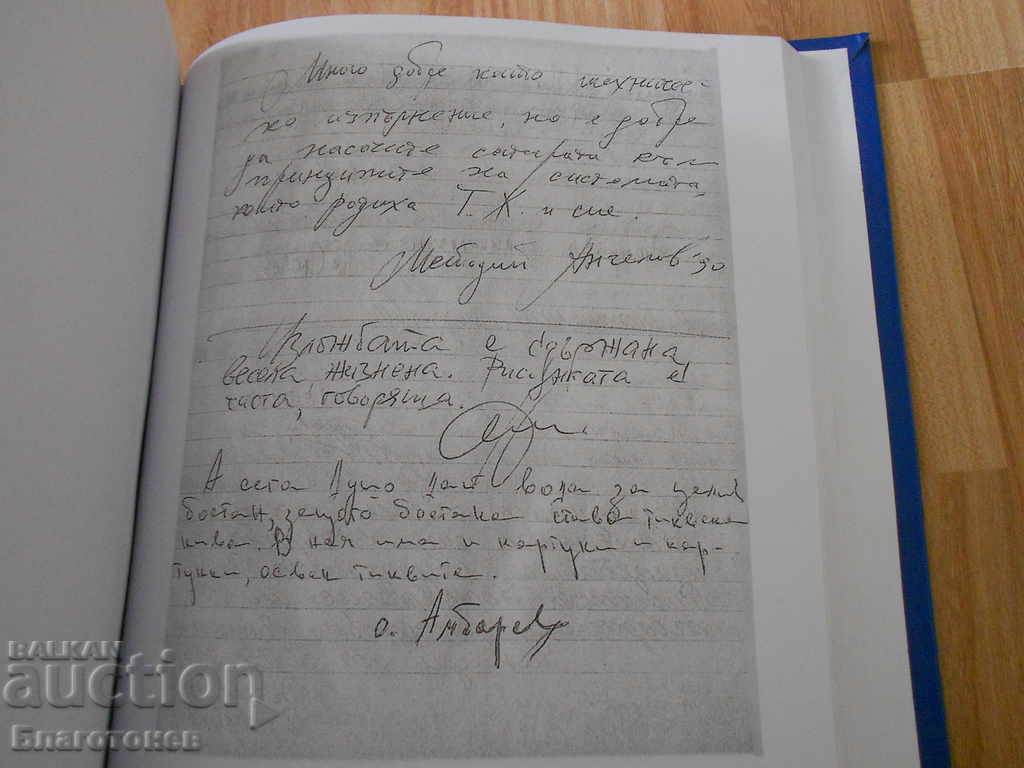 Много добре като техничес-
ко изпърнение, но е добре
да насочите сатирата към
принципите на системата,
които родиха Т. Ж. и сие.
Методий Ангелов 90
Изложбата е сдържана,
весела, жизнена. Рисунката е
чиста, говоряща.
А сега Душо дай вода за целия
бостан, защото бостана става тиквена
нива. В нея има и картуни и кар-
туни, освен тиквите.
о. Амбарев
BALKAN
auction
Благотонев